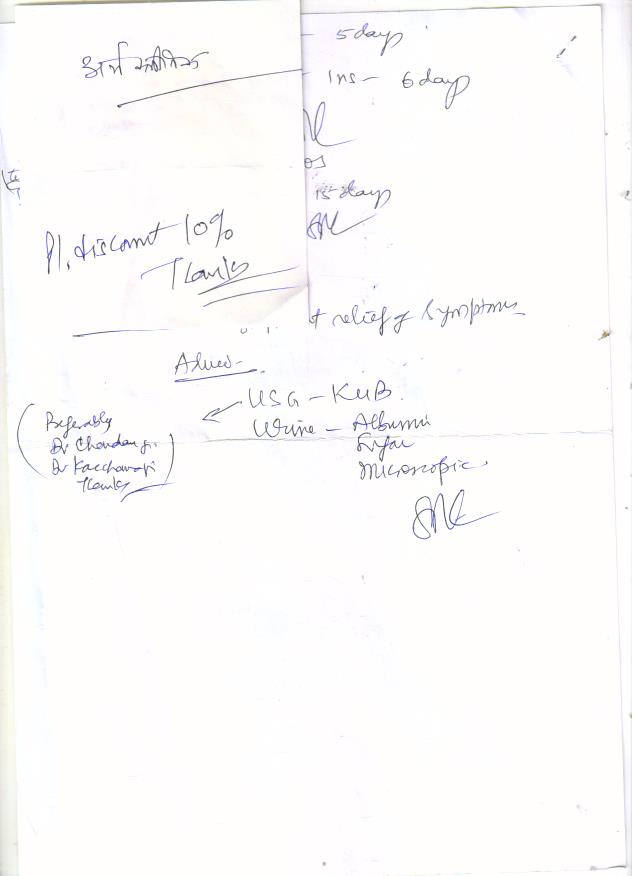 - 5 day
- Ins - 6 day
15 day
Pl. discount 10%
Thanks
relief of symptoms
Advice -
USG - KUB.
Urine - Albumin
Sugar
Microscopic.
(Preferably
Dr Chandan ji
Dr Kacchawaji
Thanks)